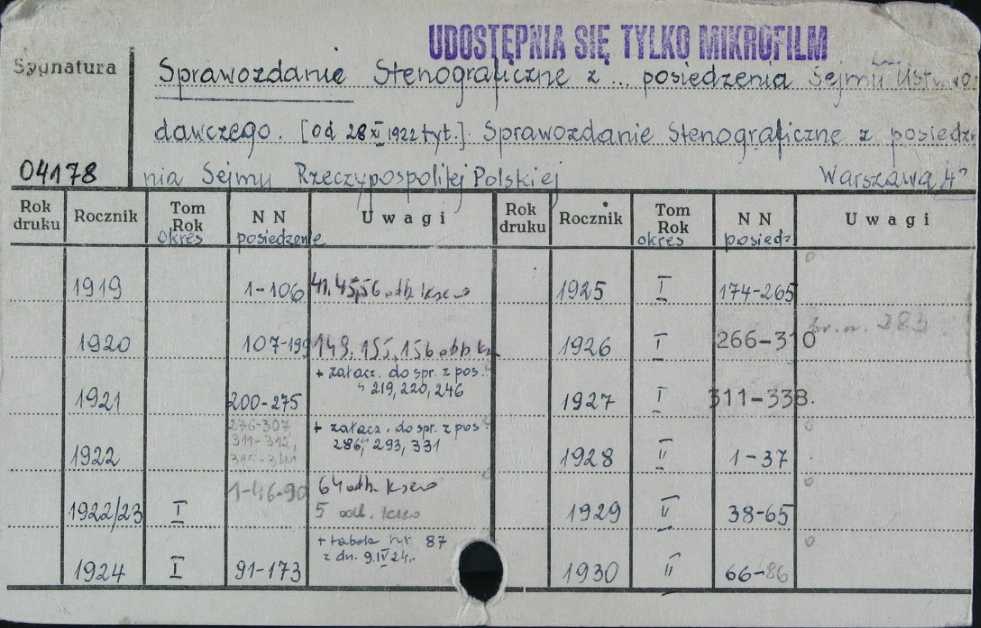 UDOSTĘPNIA SIĘ TYLKO MIKROFILM
Sygnatura
Sprawozdanie Stenograficzne z ... posiedzenia Sejmu Ustawo
dawczego. [od 28 XI 1922 tyt.] Sprawozdanie Stenograficzne z posiedze
04178 nia Sejmu Rzeczypospolitej Polskiej Warszawa 4°
Rok druku Rocznik Tom Rok okres NN posiedzenie Uwagi Rok druku Rocznik Tom Rok okres NN posiedz Uwagi
1919 1-106 41, 45, 56 odb. ksero 1925 I 174-265
1920 107-199 149, 155, 156 odb. 1926 I 266-310
+ załącz. do spr. z pos.
219, 220, 246
1921 200-275 1927 I 311-338.
276-307
+ załącz. do spr. z pos
286, 293, 331
1922 1928 II 1-37
1-46-90 64 odb. ksero
1922/23 I 5 odb. ksero 1929 II 38-65
+ tabela nr 87
z dn. 9.IV 24.
1924 I 91-173 1930 II 66-86